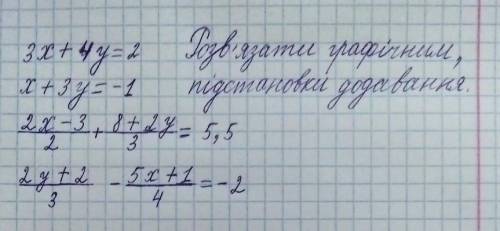 3x + 4y = 2 Розв'язати графічним,
x + 3y = -1 підстановки додавання.
(2x - 3)/2 + (8 + 2y)/3 = 5,5
(2y + 2)/3 - (5x + 1)/4 = -2